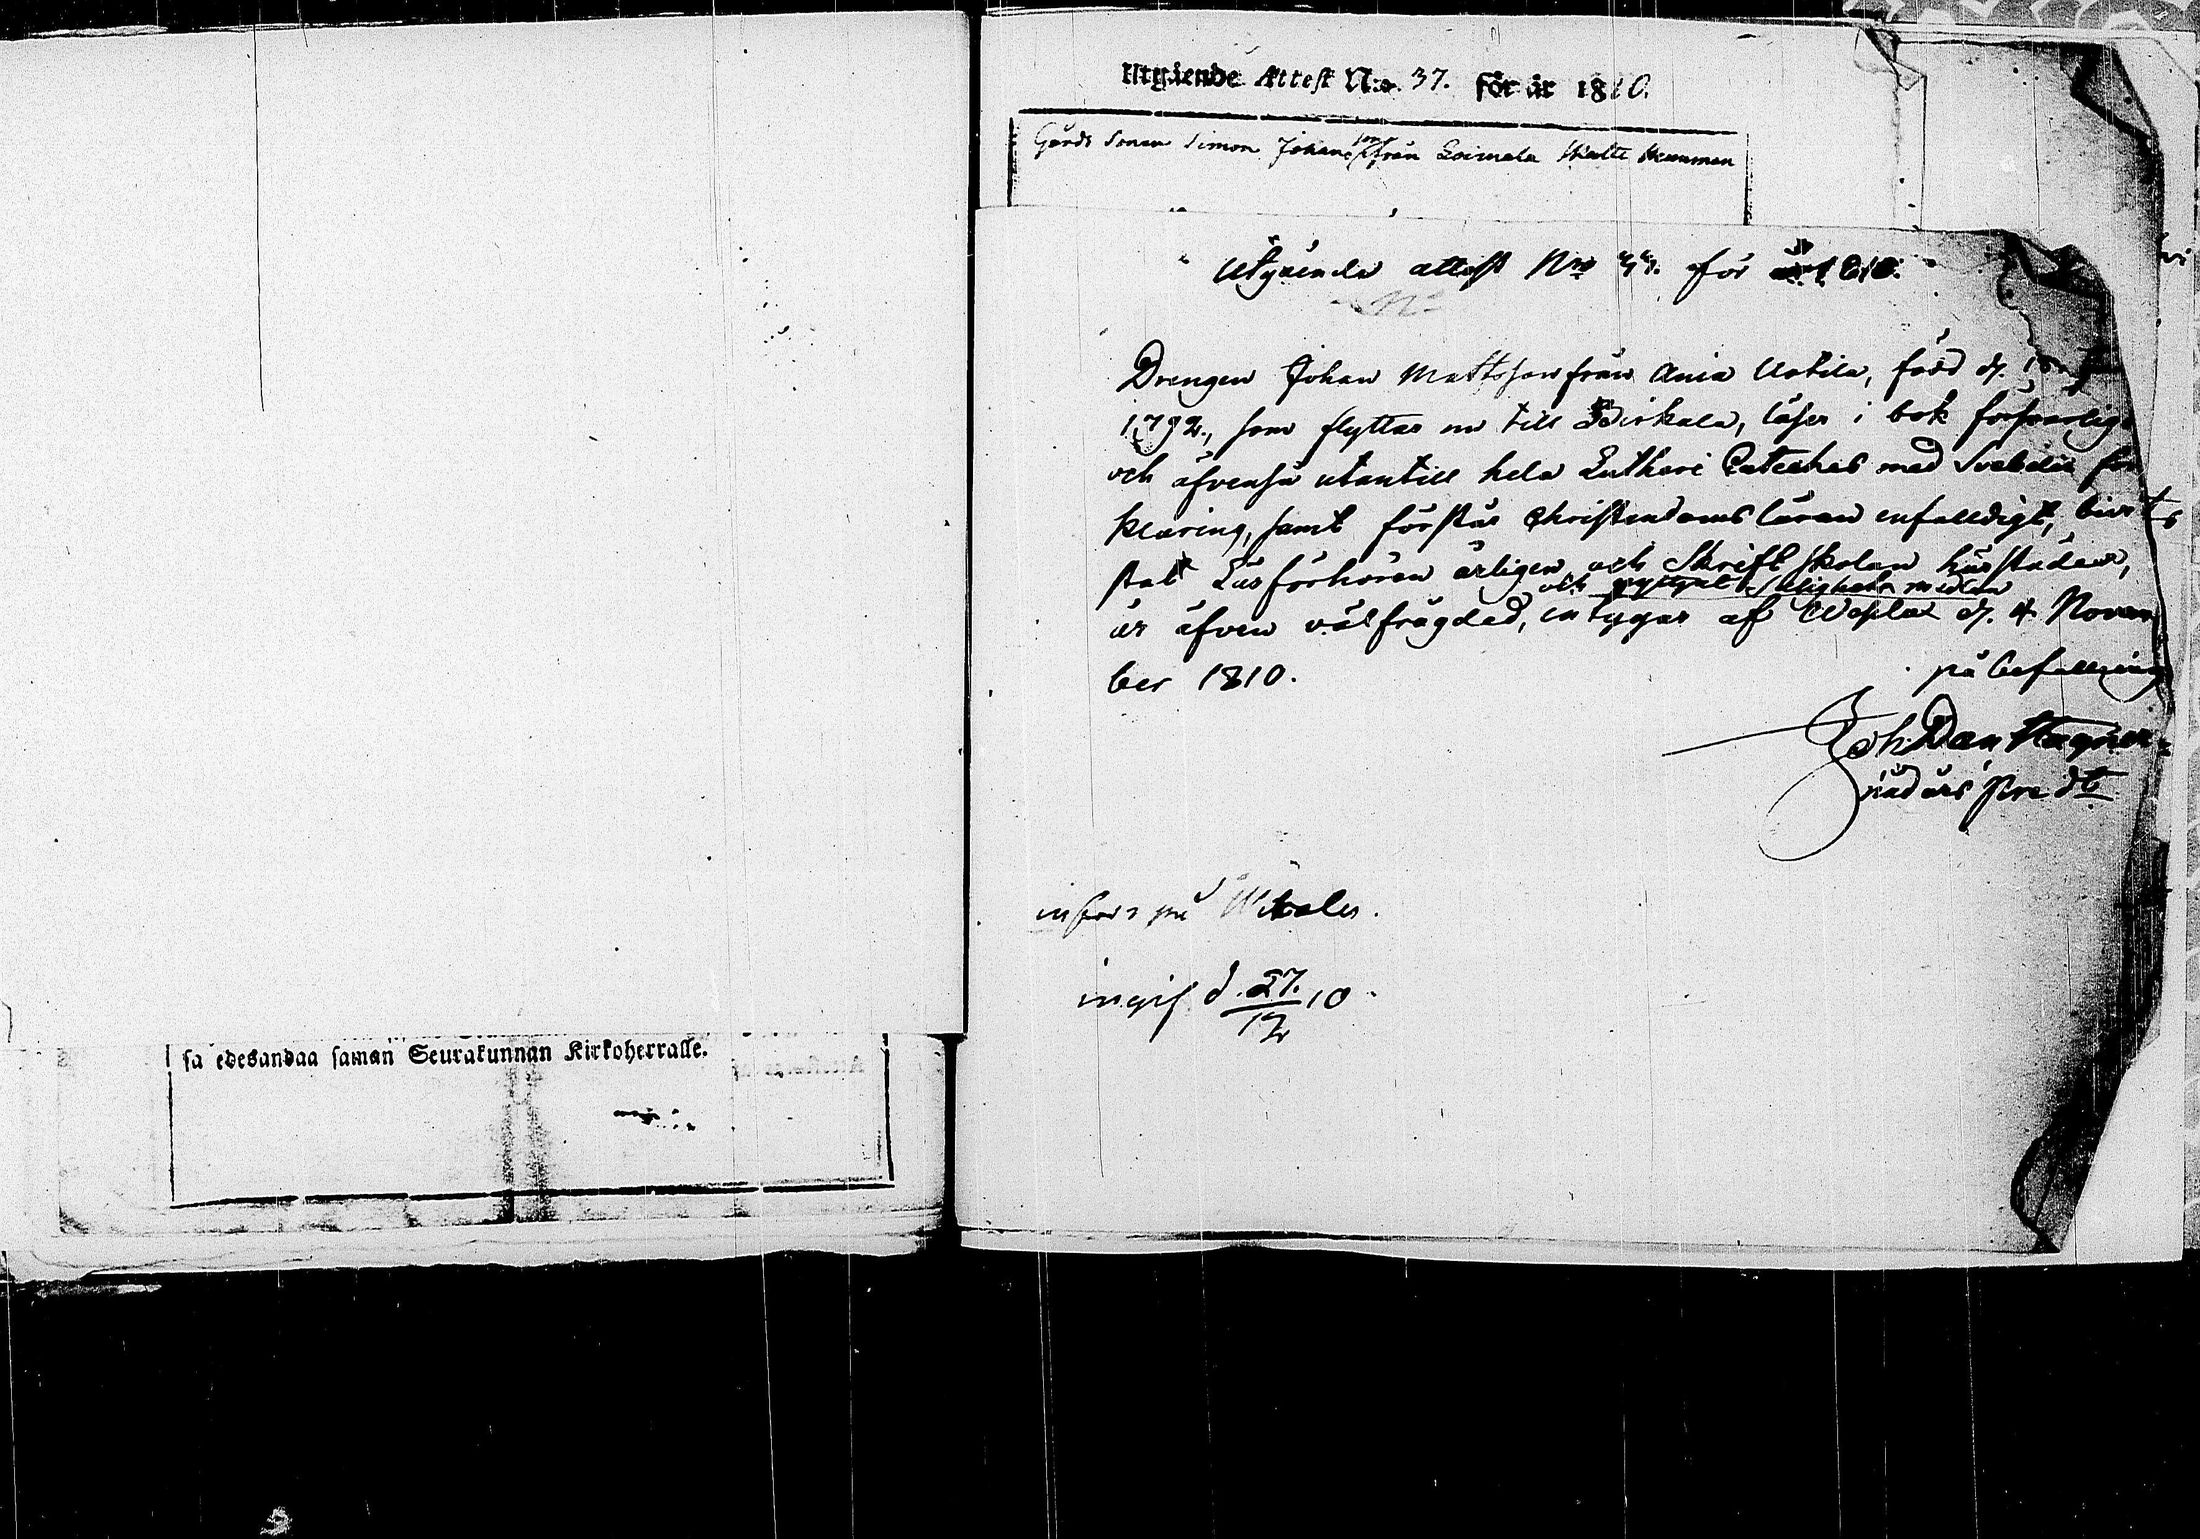 Utgående Attest N:o 37. för år 1810.
Gårds Sonen Simon Johansson från Loimala
Utgående attest Nro för år 1810.
N:
Drengen Johan Mattsson från Ania Uotila, född d. 18
1792., som flyttar nu till Birkala, läser i bok försvarlig
och äfvenså utantill hela Lutheri Cateches med Svebilii för
klaring, samt förstår Christendoms läran enfalldigt, bivi
stat Läsförhören årligen och Skrift skolan härstädes,
och nyttjat Salighets medlen
är äfven välfrägdad, intygar af Wesilax d. 4 Novem
ber 1810.
på befallning
Joh. Dan. Wagner
nådårs Pred.
införd på
ingif d. 27./12 10
sa edesandaa saman Seurakunnan Kirkoherralle.